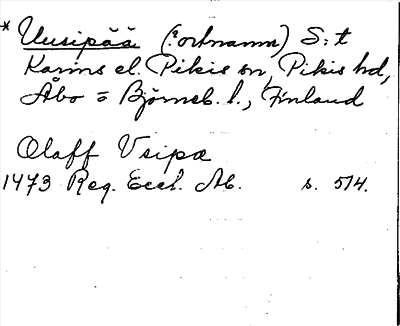 * Uusipää (?ortnamn) S:t
Karins el. Pikis sn, Pikis hd,
Åbo o Björneb. l., Finland
Olaff Vsipæ
1473 Reg. Eccl. Ab. s. 514.